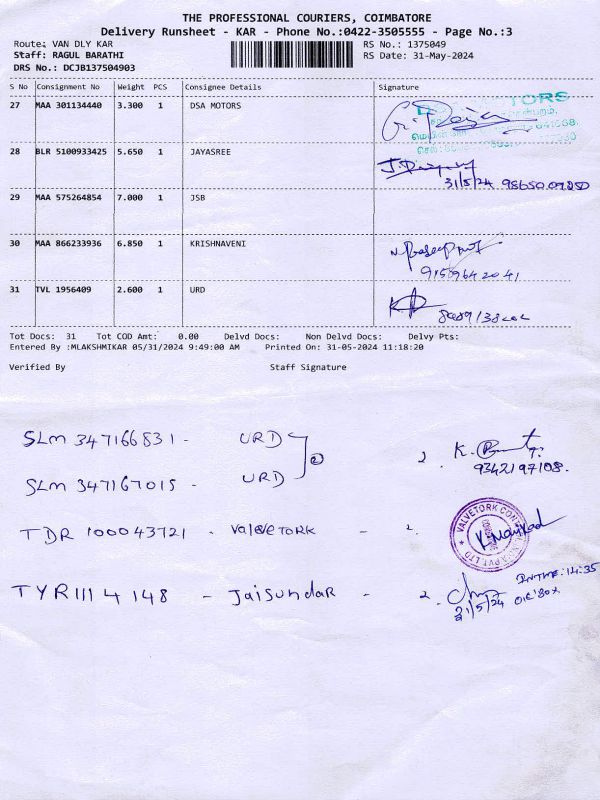 THE PROFESSIONAL COURIERS, COIMBATORE
Delivery Runsheet - KAR - Phone No.:0422-3505555 - Page No.:3
Route: VAN DLY KAR RS No.: 1375049
Staff: RAGUL BARATHI RS Date: 31-May-2024
DRS No.: DCJB137504903
S No Consignment No Weight PCS Consignee Details Signature
27 MAA 301134440 3.300 1 DSA MOTORS
28 BLR 5100933425 5.650 1 JAYASREE
31/5/24 9865007250
29 MAA 575264854 7.000 1 JSB
30 MAA 866233936 6.850 1 KRISHNAVENI
9159642041
31 TVL 1956409 2.600 1 URD
Tot Docs: 31 Tot COD Amt: 0.00 Delvd Docs: Non Delvd Docs: Delvy Pts:
Entered By :MLAKSHMIKAR 05/31/2024 9:49:00 AM Printed On: 31-05-2024 11:18:20
Verified By Staff Signature
SLM 347166831 - URD
2 2. K.
SLM 347167015 - URD 9342197108.
TDR 100043721 - Valvetork - 2.
VALVETORK PVT LTD
TYR1114148 - Jaisundar - 2. 31/5/24 INTIME: 14:35